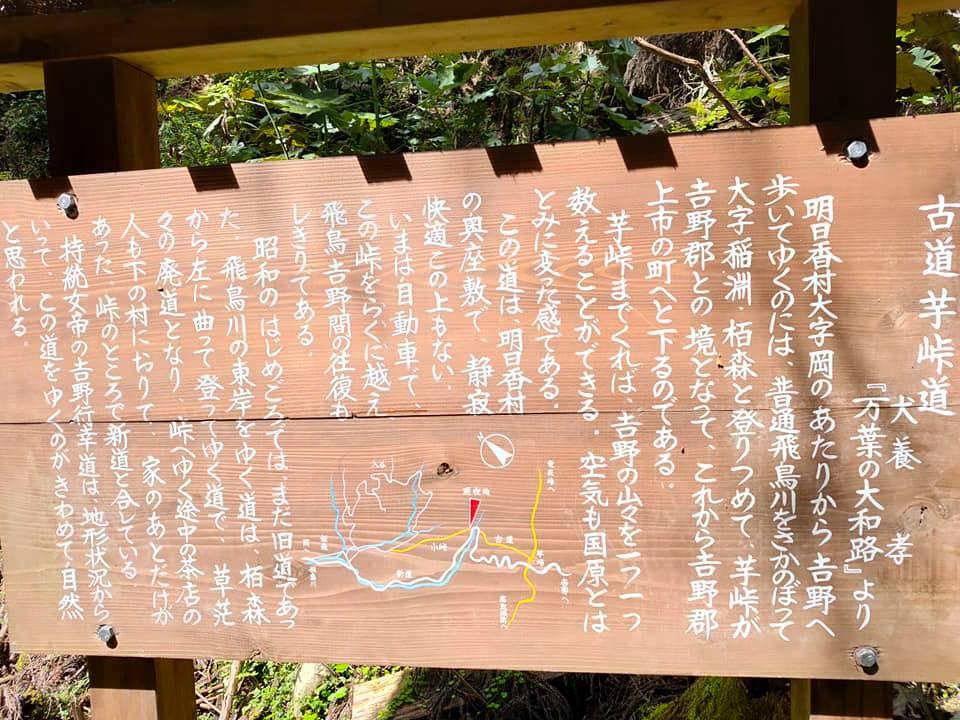 古道芋峠道
犬養孝
『万葉の大和路』より
明日香村大字岡のあたりから吉野へ
歩いてゆくのには、普通飛鳥川をさかのぼって
大字稲淵・栢森と登りつめて、芋峠が
吉野郡との境となって、これから吉野郡
上市の町へと下るのである。
芋峠までくれば、吉野の山々を一つ一つ
数えることができる。空気も国原とは
とみに変った感である。
この道は、明日香村
の奥座敷で、静寂
快適この上もない。
いまは自動車で、
この峠をらくに越え
飛鳥吉野間の往復も
しきりである。
昭和のはじめごろでは、まだ旧道であっ
た。飛鳥川の東岸をゆく道は、栢森
から左に曲って登ってゆく道で、草茫
々の廃道となり、峠へゆく途中の茶店の
人も下の村におりて、家のあとだけが
あった。峠のところで新道と合している
持統女帝の吉野行幸道は、地形状況から
いって、この道をゆくのがきわめて自然
と思われる。
竜在峠へ
入谷
現在地
古道
小峠
芋峠
栢森
岡へ
新道
吉野へ
高取城跡へ